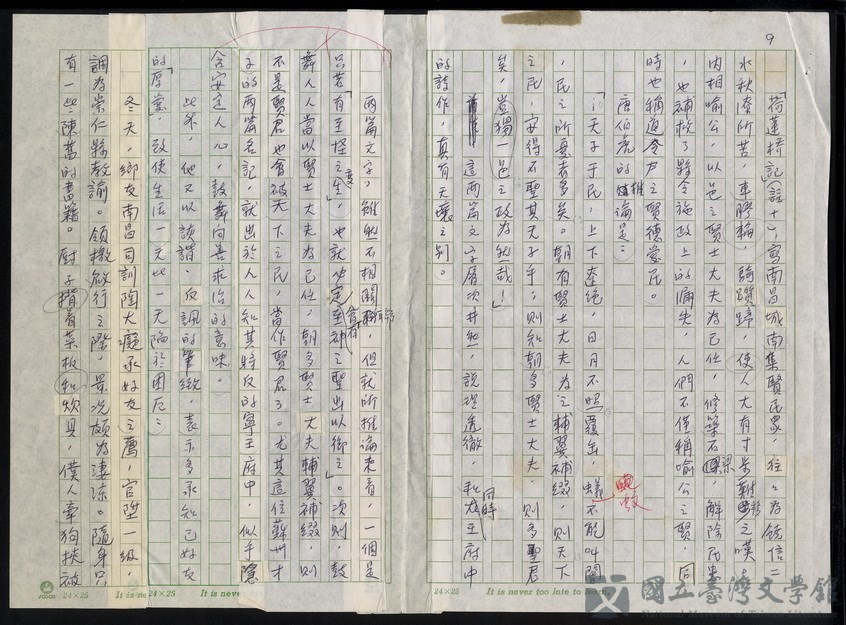 9
「荷蓮橋記」(註十一)寫南昌城南集賢民眾,往々為饒信二
水秋潦所苦,車膠輪,騎躓蹄,使人大有寸步難移之嘆。
內相喻公,以邑之賢士大夫為己任,修築石梁,解除民患
,也補救了縣令施政上的漏失,人們不僅稱喻公之賢,同
時也稱道令尹之賢德愛民。
唐伯虎的推論是:
「天子于民,上下遼絕,日月不照覆盆,蟣蚊不能叫閽
,民之所憂者多矣。朝有賢士大夫為之輔翼補綴,則天下
之民,安得不聖其天子乎;則知朝多賢士大夫,則多聖君
矣,豈獨一邑之政為然哉!」
這兩篇文字層次井然,說理透徹,和同時王府中
的詩作,真有天壤之別。
兩篇文字,雖然不相關聯,但就所推論來看,一個是
只若「有至怪之變生,也就必定有至神之聖出以御之」。次則,鼓
舞人人當以賢士大夫為己任,朝多賢士大夫輔翼補綴,則
不是賢君也會被天下之民,當作賢君了。尤其這位蘇州才
子的兩篇名記,就出於人人知其將反的寧王府中,似乎隱
含安定人心,鼓舞向善求治的意味。
此外,他又以詼諧、反諷的筆緻,表示多承知己好友
的「厚意」,致使生活一天比一天陷於困厄:
冬天,鄉友南昌司訓陶大癡承好友之薦,官陞一級,
調為崇仁縣教諭。領檄啟行之際,景況頗為淒涼。隨身只
有一些陳舊的書籍。廚子揹着菜板和炊具,僕人牽狗挾被
24×25
It is never too late to learn.
24×25
It is never
24×25
國立臺灣文學館